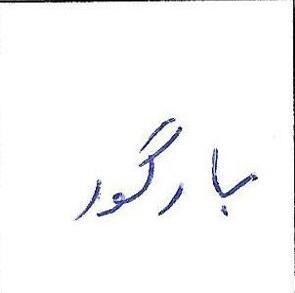 بارگور